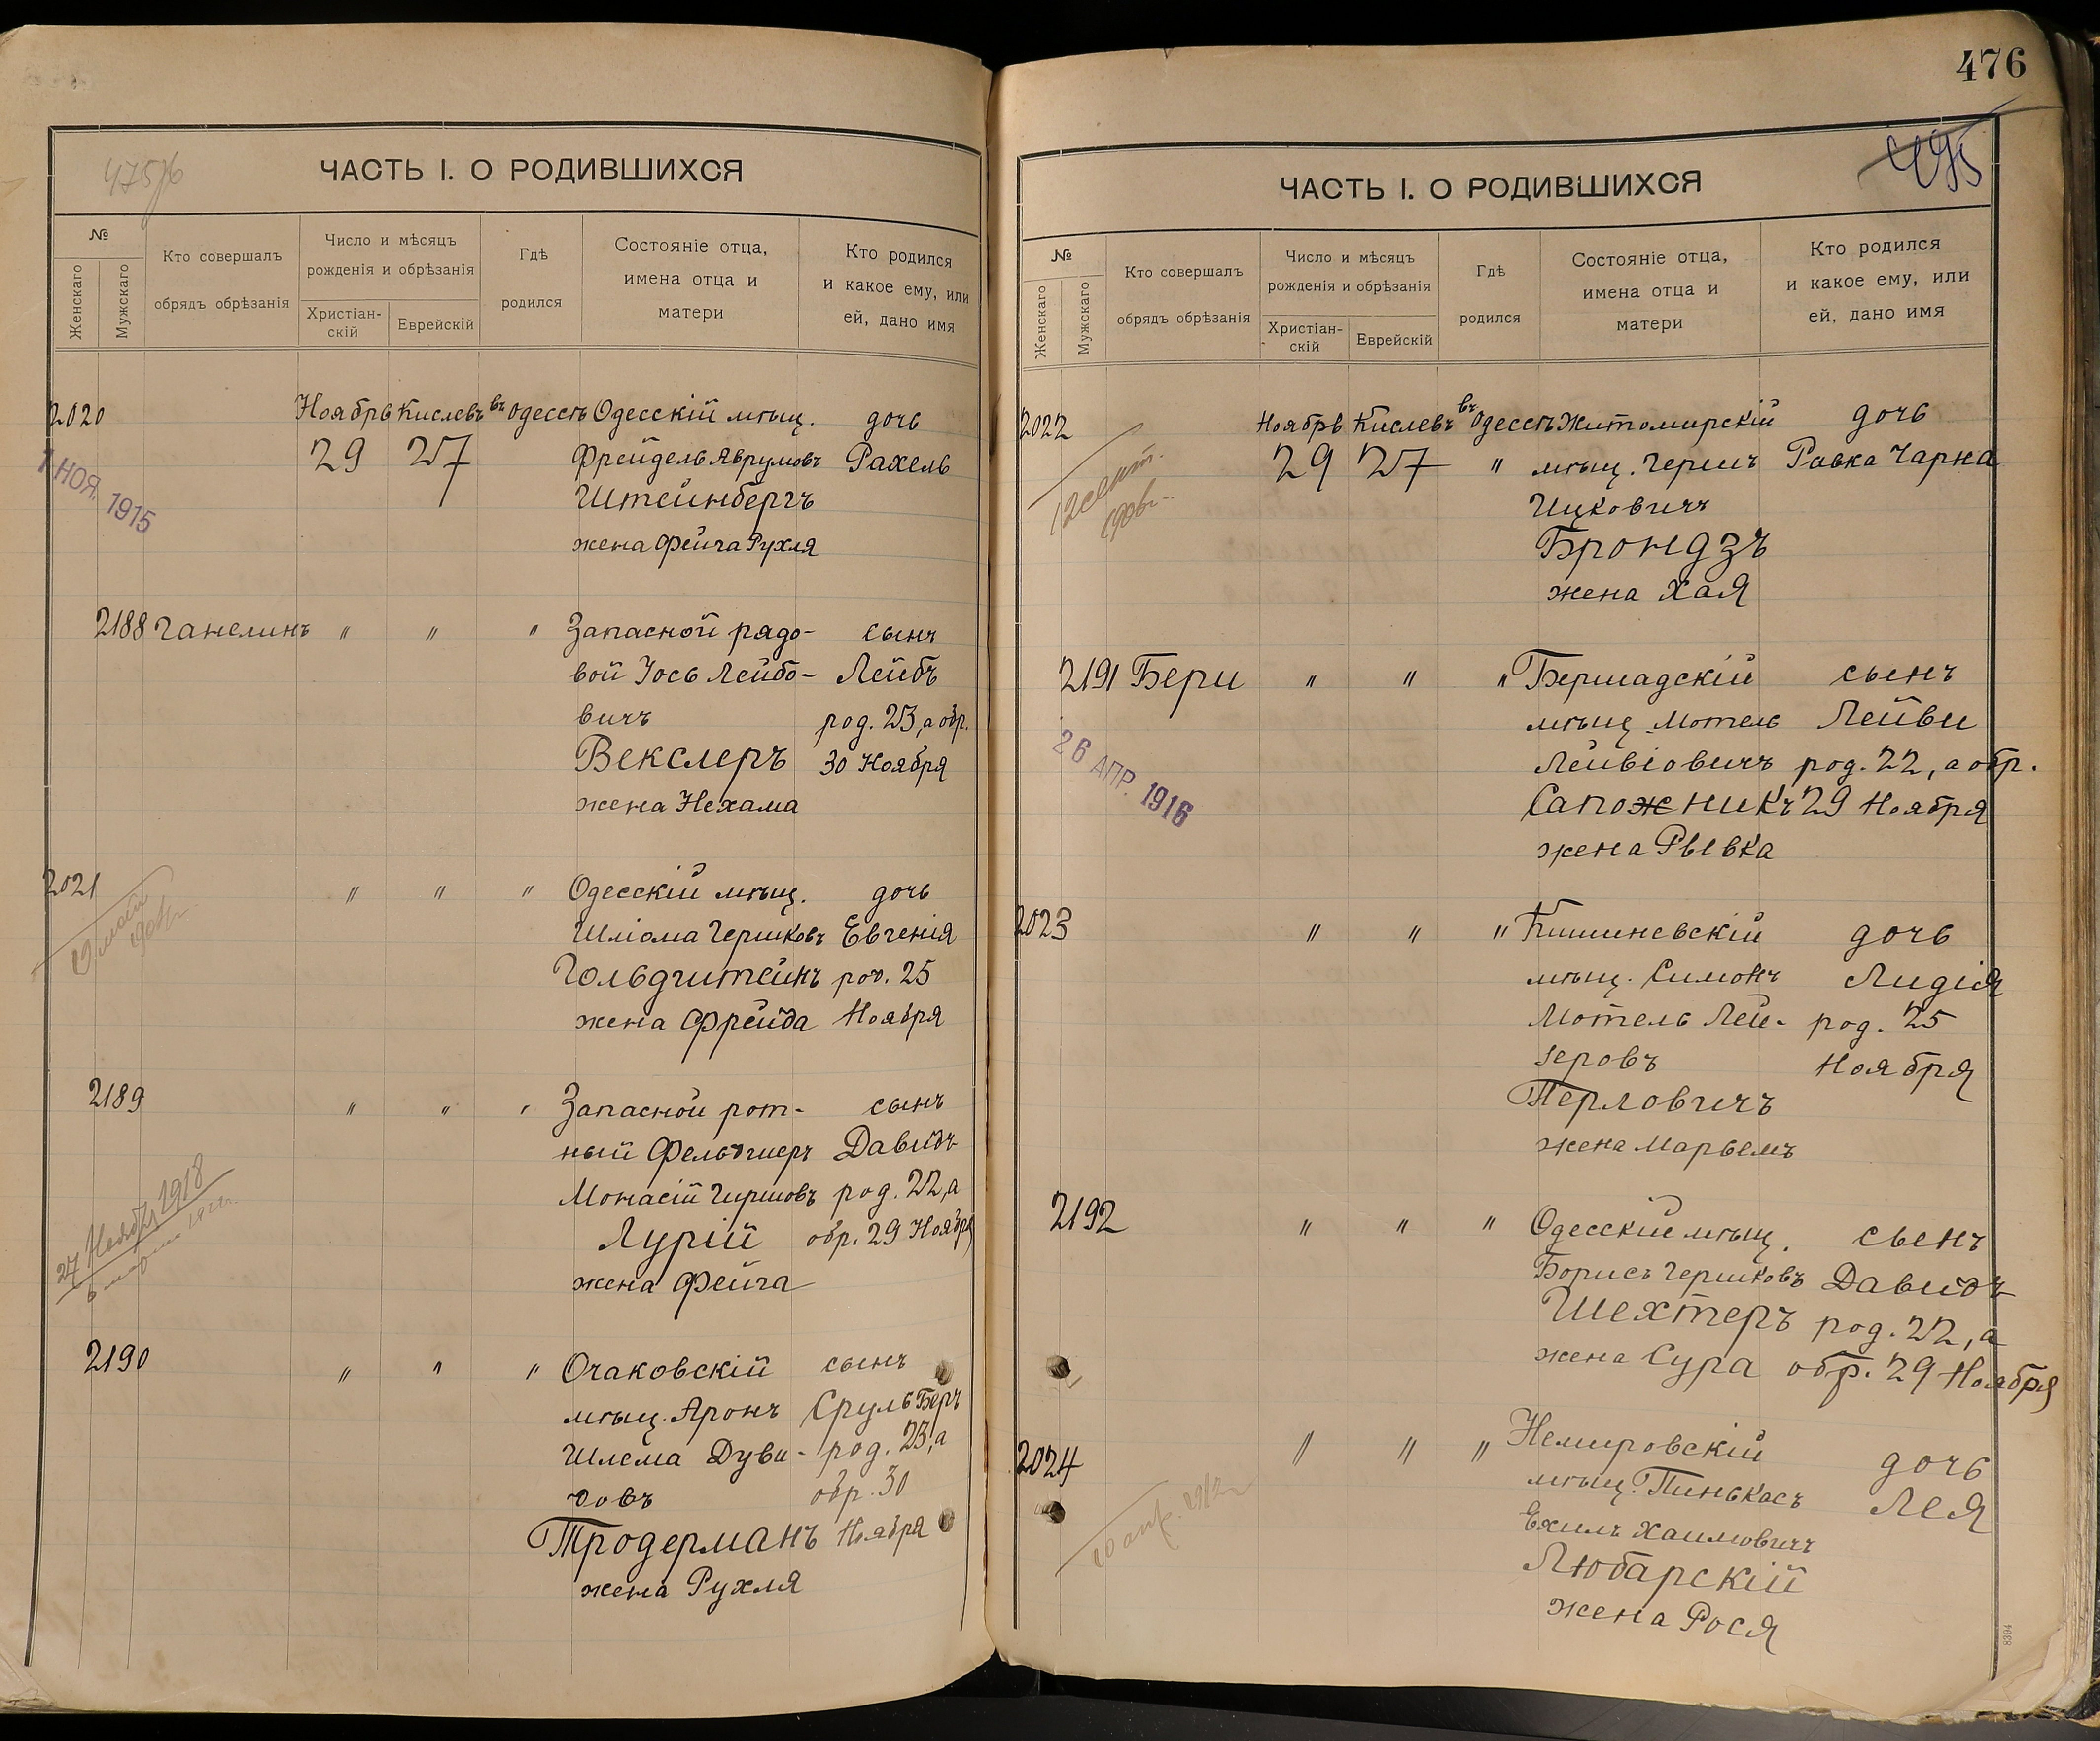 475об
ЧАСТЬ I. О РОДИВШИХСЯ
№
Женскаго
Мужскаго
Кто совершалъ
обрядъ обрѣзанія
Число и мѣсяцъ
рожденія и обрѣзанія
Христіан-
скій
Еврейскій
Гдѣ
родился
Состояніе отца,
имена отца и
матери
Кто родился
и какое ему, или
ей, дано имя
2020 Ноябрь Кислевъ въ Одессѣ Одесскій мѣщ. дочь
29 27 Фрейдель Аврумовъ Рахель
1 НОЯ. 1915
Штейнбергъ
жена Фейга Рухля
2188 Ганелинъ " " " Запасной рядо- сынъ
вой Іось Лейбо- Лейбъ
вичъ род. 23, а обр.
Векслеръ 30 Ноября
жена Нехама
2021 " " " Одесскій мѣщ. дочь
Шліома Гершковъ Евгенія
Гольдштейнъ род. 25
жена Фрейда Ноября
2189 " " " Запасной рот- сынъ
ный Фельдшеръ Давидъ
Монасій Гиршовъ род. 22, а
Лурій обр. 29 Ноября
жена Фейга
27 Ноября 1918
2190 " " " Очаковскій сынъ
мѣщ. Аронъ Сруль Беръ
Шлема Дуви- род. 23, а
довъ обр. 30
Тродерманъ Ноября
жена Рухля
476
495
ЧАСТЬ I. О РОДИВШИХСЯ
№
Женскаго
Мужскаго
Кто совершалъ
обрядъ обрѣзанія
Число и мѣсяцъ
рожденія и обрѣзанія
Христіан-
скій
Еврейскій
Гдѣ
родился
Состояніе отца,
имена отца и
матери
Кто родился
и какое ему, или
ей, дано имя
2022 Ноябрь Кислевъ въ Одессѣ Житомирскій дочь
29 27 " мѣщ. Гершъ Равка Чарна
12 сент.
Ицковичъ
Брондзъ
жена Хая
2191 Бери " " " Бершадскій сынъ
мѣщ Мотель Лейви
Лейвіовичъ род. 22, а обр.
26 АПР. 1916
Сапожникъ 29 Ноября
жена Рывка
2023 " " " Кишиневскій дочь
мѣщ. Симонъ Лидія
Мотель Лей- род. 25
зеровъ Ноября
Перловичъ
жена Марьемъ
2192 " " " Одесскій мѣщ. сынъ
Борисъ Гершковъ Давидъ
Шехтеръ род. 22, а
жена Сура обр. 29 Ноября
2024 " " " Немировскій дочь
мѣщ. Пинькасъ Лея
Ехилъ Хаимовичъ
Любарскій
жена Рося
8394